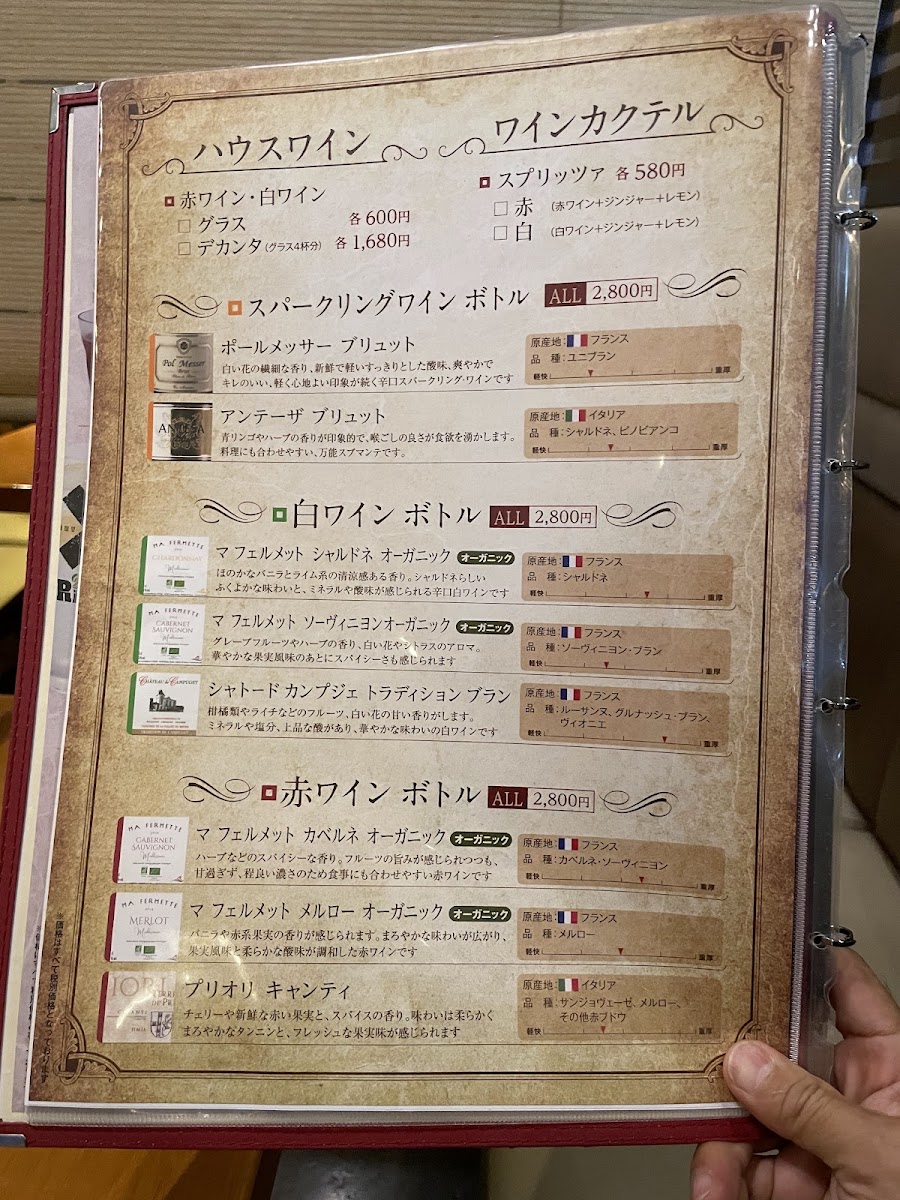 ハウスワイン
赤ワイン・白ワイン
グラス 各600円
デカンタ(グラス4杯分) 各1,680円
ワインカクテル
スプリッツァ 各580円
赤 (赤ワイン+ジンジャー+レモン)
白 (白ワイン+ジンジャー+レモン)
スパークリングワイン ボトル ALL 2,800円
Pol Messer
Brut
ポールメッサー ブリュット
白い花の繊細な香り、新鮮で軽いすっきりとした酸味、爽やかで
キレのいい、軽く心地よい印象が続く辛口スパークリング・ワインです
原産地:フランス
品 種:ユニブラン
軽快 重厚
アンテーザ ブリュット
青リンゴやハーブの香りが印象的で、喉ごしの良さが食欲を湧かします。
料理にも合わせやすい、万能スプマンテです。
原産地:イタリア
品 種:シャルドネ、ピノビアンコ
軽快 重厚
白ワイン ボトル ALL 2,800円
MA FERMETTE
CHARDONNAY
マ フェルメット シャルドネ オーガニック オーガニック
ほのかなバニラとライム系の清涼感ある香り。シャルドネらしい
ふくよかな味わいと、ミネラルや酸味が感じられる辛口白ワインです
原産地:フランス
品 種:シャルドネ
軽快 重厚
MA FERMETTE
CABERNET
SAUVIGNON
マ フェルメット ソーヴィニヨンオーガニック オーガニック
グレープフルーツやハーブの香り、白い花やシトラスのアロマ。
華やかな果実風味のあとにスパイシーさも感じられます
原産地:フランス
品 種:ソーヴィニヨン・ブラン
軽快 重厚
CHÂTEAU de CAMPUGET
シャトード カンプジェ トラディション ブラン
柑橘類やライチなどのフルーツ、白い花の甘い香りがします。
ミネラルや塩分、上品な酸があり、華やかな味わいの白ワインです
原産地:フランス
品 種:ルーサンヌ、グルナッシュ・ブラン、
ヴィオニエ
軽快 重厚
赤ワイン ボトル ALL 2,800円
MA FERMETTE
CABERNET
SAUVIGNON
マ フェルメット カベルネ オーガニック オーガニック
ハーブなどのスパイシーな香り。フルーツの旨みが感じられつつも、
甘過ぎず、程良い濃さのため食事にも合わせやすい赤ワインです
原産地:フランス
品 種:カベルネ・ソーヴィニヨン
軽快 重厚
MA FERMETTE
MERLOT
マ フェルメット メルロー オーガニック オーガニック
バニラや赤系果実の香りが感じられます。まろやかな味わいが広がり、
果実風味と柔らかな酸味が調和した赤ワインです
原産地:フランス
品 種:メルロー
軽快 重厚
プリオリ キャンティ
チェリーや新鮮な赤い果実と、スパイスの香り。味わいは柔らかく
まろやかなタンニンと、フレッシュな果実味が感じられます
原産地:イタリア
品 種:サンジョヴェーゼ、メルロー、
その他赤ブドウ
軽快 重厚
※価格はすべて税別価格となっております